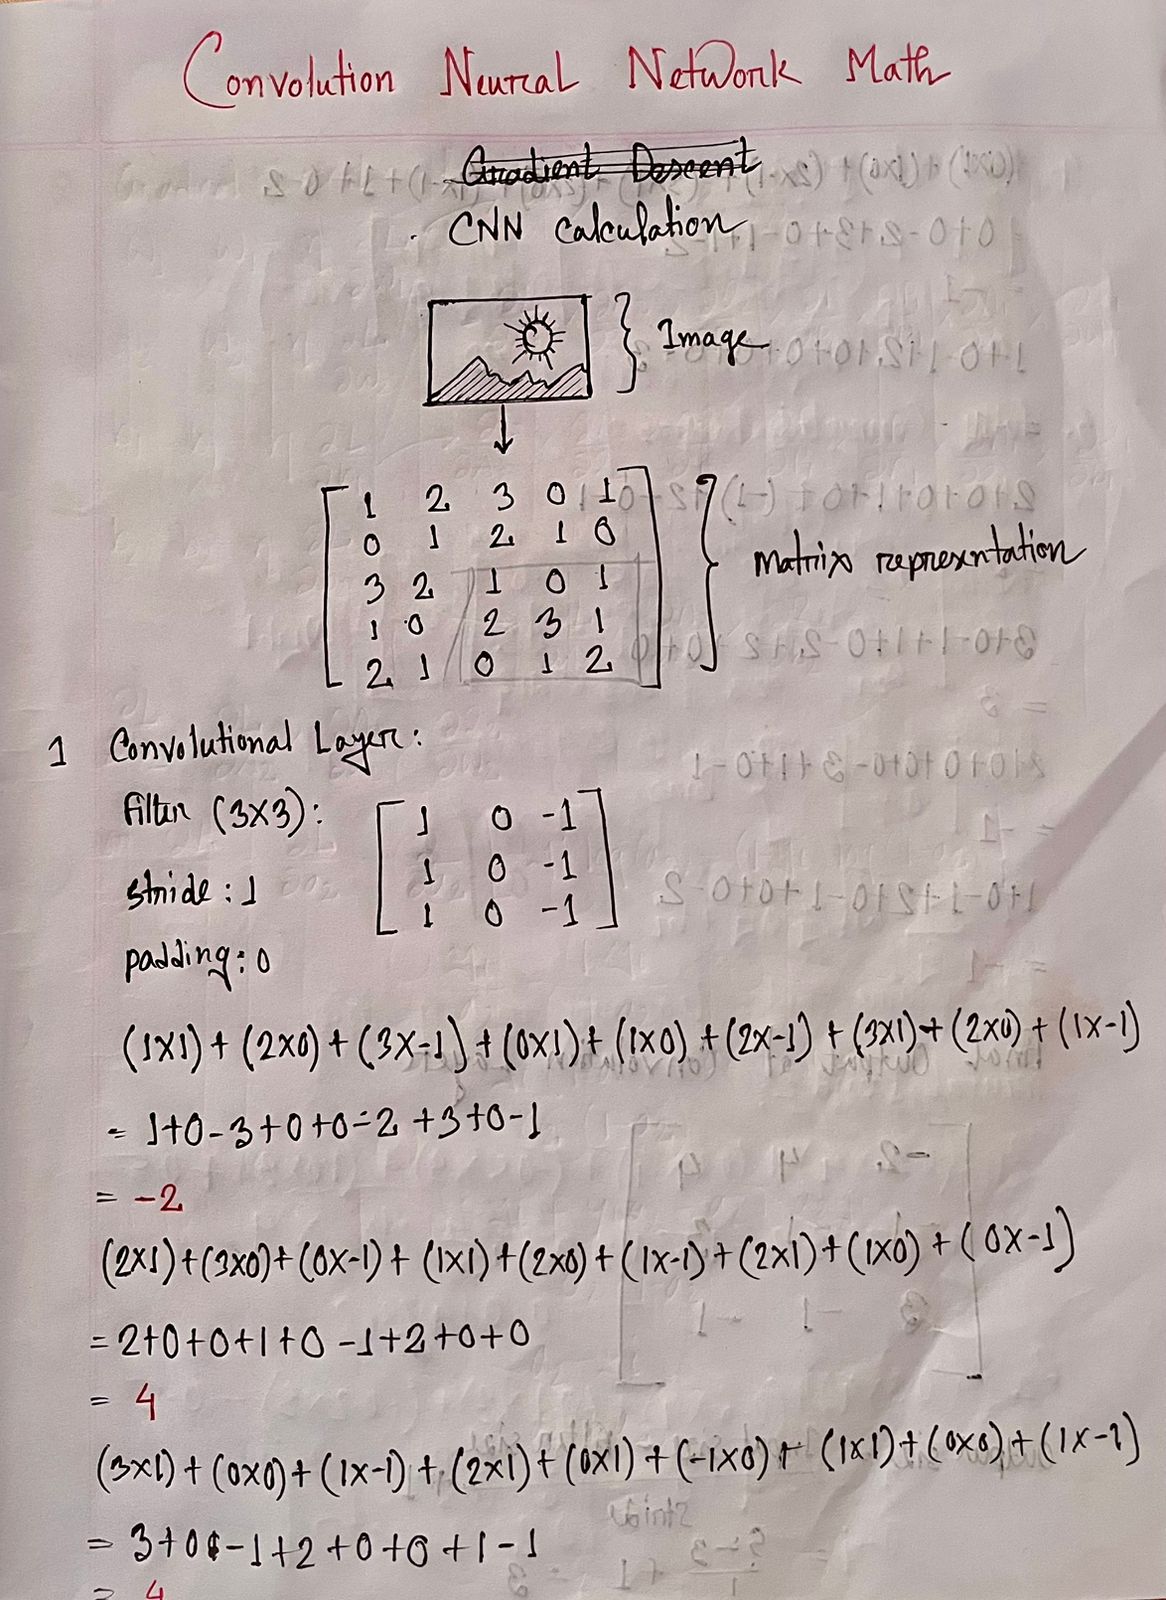 Convolution Neural Network Math
Gradient Descent
CNN calculation
Image
1 2 3 0 1
0 1 2 1 0
3 2 1 0 1
1 0 2 3 1
2 1 0 1 2
Matrix represntation
1 Convolutional Layer:
Filter (3X3):
1 0 -1
1 0 -1
1 0 -1
stride : 1
padding : 0
(1X1) + (2X0) + (3X-1) + (0X1) + (1X0) + (2X-1) + (3X1) + (2X0) + (1X-1)
= 1+0-3+0+0-2+3+0-1
= -2
(2X1) + (3X0) + (0X-1) + (1X1) + (2X0) + (1X-1) + (2X1) + (1X0) + (0X-1)
= 2+0+0+1+0-1+2+0+0
= 4
(3X1) + (0X0) + (1X-1) + (2X1) + (0X1) + (-1X0) + (1X1) + (0X0) + (1X-1)
= 3+0-1+2+0+0+1-1
= 4